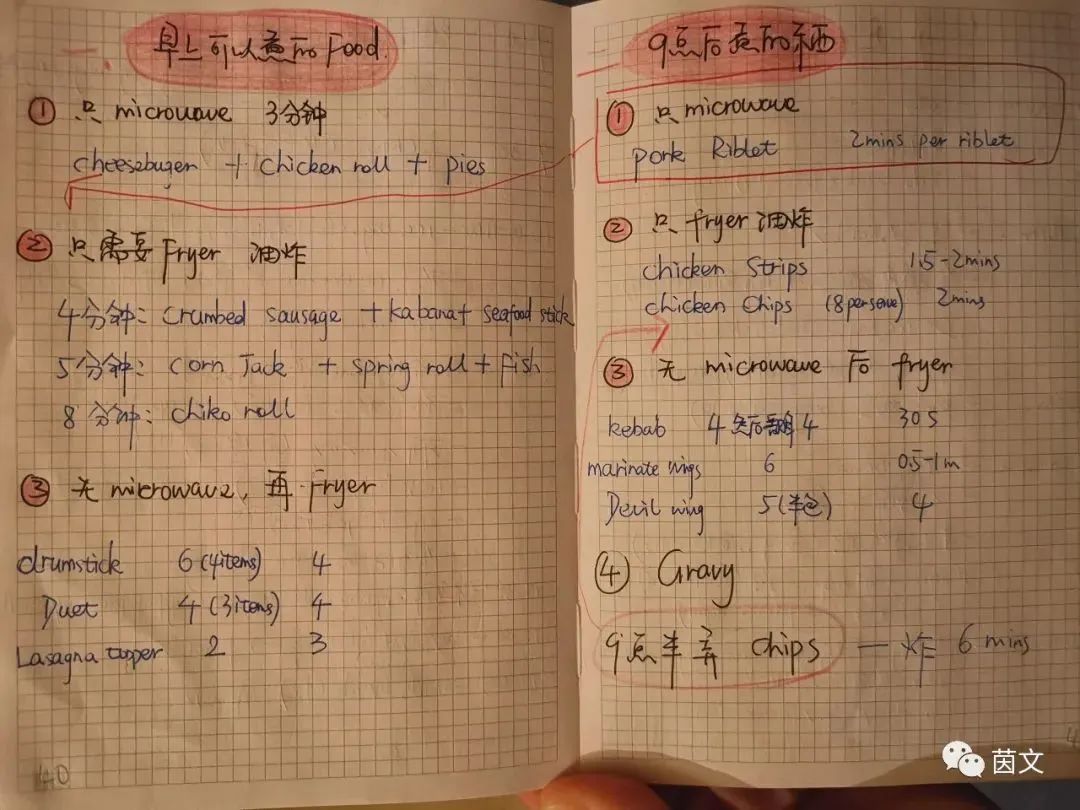 早上可以煮的 Food.
① 只 microwave 3分钟
cheesebuger + chicken roll + pies
② 只需要 Fryer 油炸
4分钟: crumbed sausage + kabana + seafood stick
5分钟: corn Jack + spring roll + fish
8分钟: chiko roll
③ 先 microwave, 再 Fryer
drumstick 6 (4items) 4
Duet 4 (3items) 4
Lasagna topper 2 3
40
9点后煮的东西
① 只 microwave
pork Riblet 2mins per riblet
② 只 fryer 油炸
chicken strips 1.5-2mins
chicken chips (8 per serve) 2mins
③ 先 microwave 后 fryer
kebab 4 然后翻 4 30s
marinate wings 6 0.5-1m
Devil wing 5 4
④ Gravy
9点半弄 chips 一炸 6 mins
4
茵文